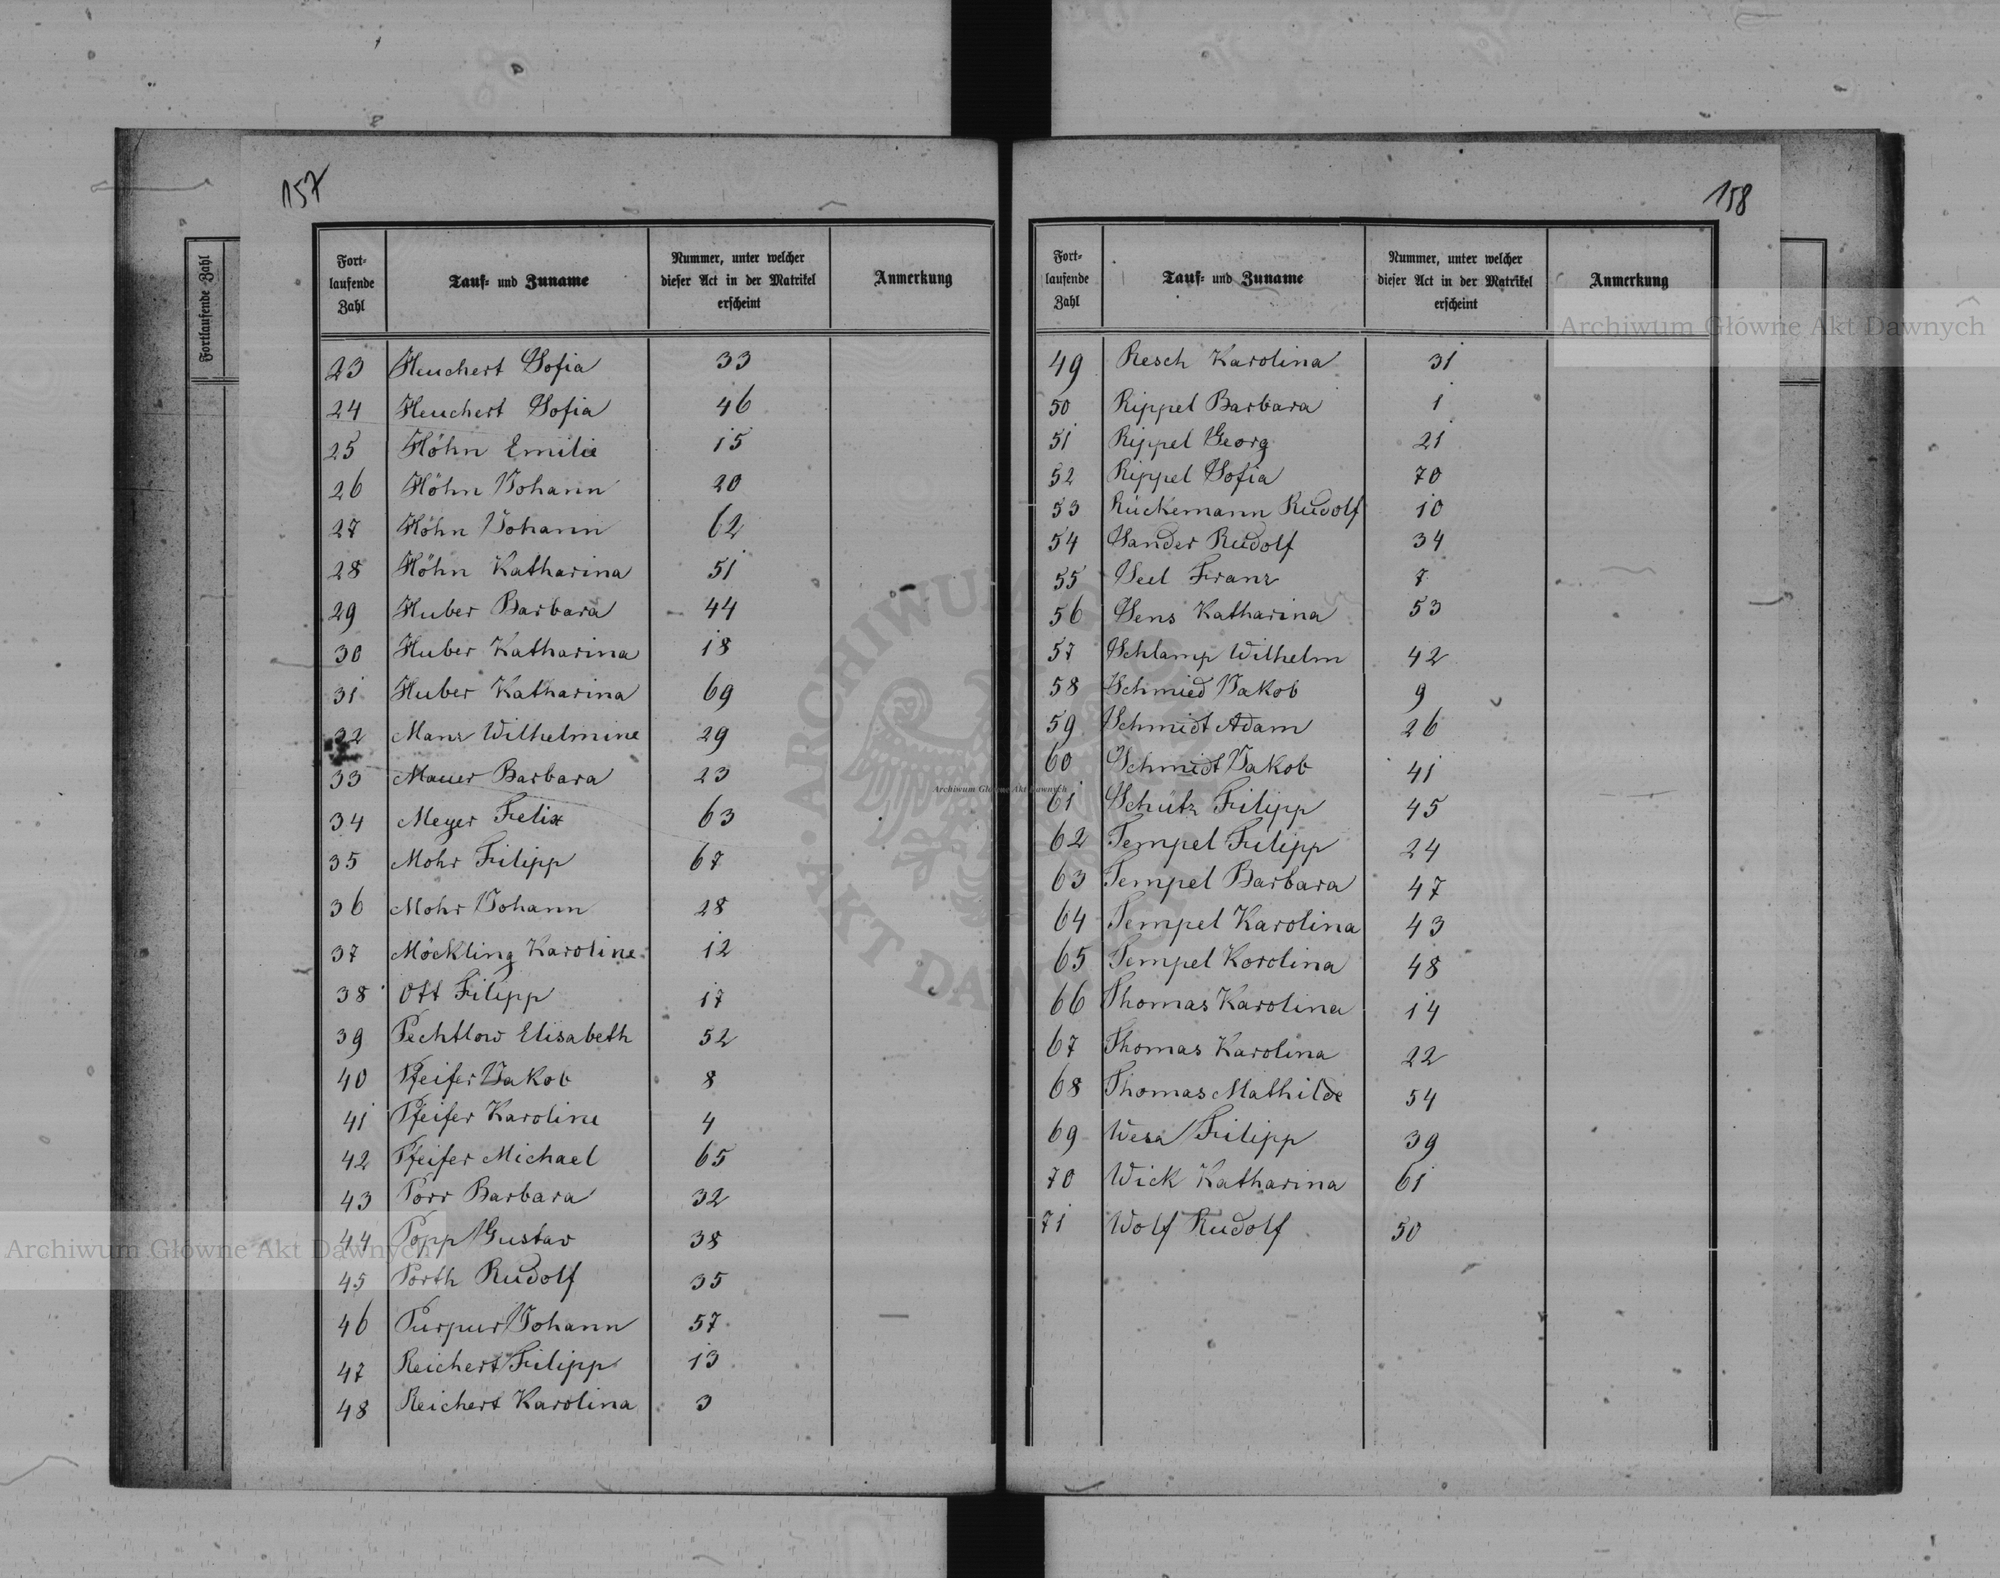 157
Fortlaufende Zahl
Fort-
laufende
Zahl
Tauf- und Zuname
Nummer, unter welcher
dieser Act in der Matrikel
erscheint
Anmerkung
23 Heuchert Sofia 33
24 Heuchert Sofia 46
25 Höhn Emilie 15
26 Höhn Johann 20
27 Höhn Johann 62
28 Höhn Katharina 51
29 Huber Barbara 44
30 Huber Katharina 18
31 Huber Katharina 69
32 Manz Wilhelmine 29
33 Mauer Barbara 23
34 Meyer Felix 63
35 Mohr Filipp 67
36 Mohr Johann 28
37 Möckling Karoline 12
38 Ott Filipp 17
39 Pechtlow Elisabeth 52
40 Pfeifer Jakob 8
41 Pfeifer Karoline 4
42 Pfeifer Michael 65
43 Porr Barbara 32
44 Popp Gustav 38
45 Porth Rudolf 35
46 Purpur Johann 57
47 Reichert Filipp 13
48 Reichert Karolina 3
158
Fort-
laufende
Zahl
Tauf- und Zuname
Nummer, unter welcher
dieser Act in der Matrikel
erscheint
Anmerkung
49 Resch Karolina 31
50 Rippel Barbara 1
51 Rippel Georg 21
52 Rippel Sofia 70
53 Rückemann Rudolf 10
54 Sander Rudolf 34
55 Seel Franz 7
56 Sens Katharina 53
57 Schlamp Wilhelm 42
58 Schmied Jakob 9
59 Schmidt Adam 26
60 Schmidt Jakob 41
61 Schütz Filipp 45
62 Tempel Filipp 24
63 Tempel Barbara 47
64 Tempel Karolina 43
65 Tempel Korolina 48
66 Thomas Karolina 14
67 Thomas Karolina 22
68 Thomas Mathilde 54
69 Wesa Filipp 39
70 Wick Katharina 61
71 Wolf Rudolf 50
Archiwum Główne Akt Dawnych
Archiwum Główne Akt Dawnych
Archiwum Główne Akt Dawnych